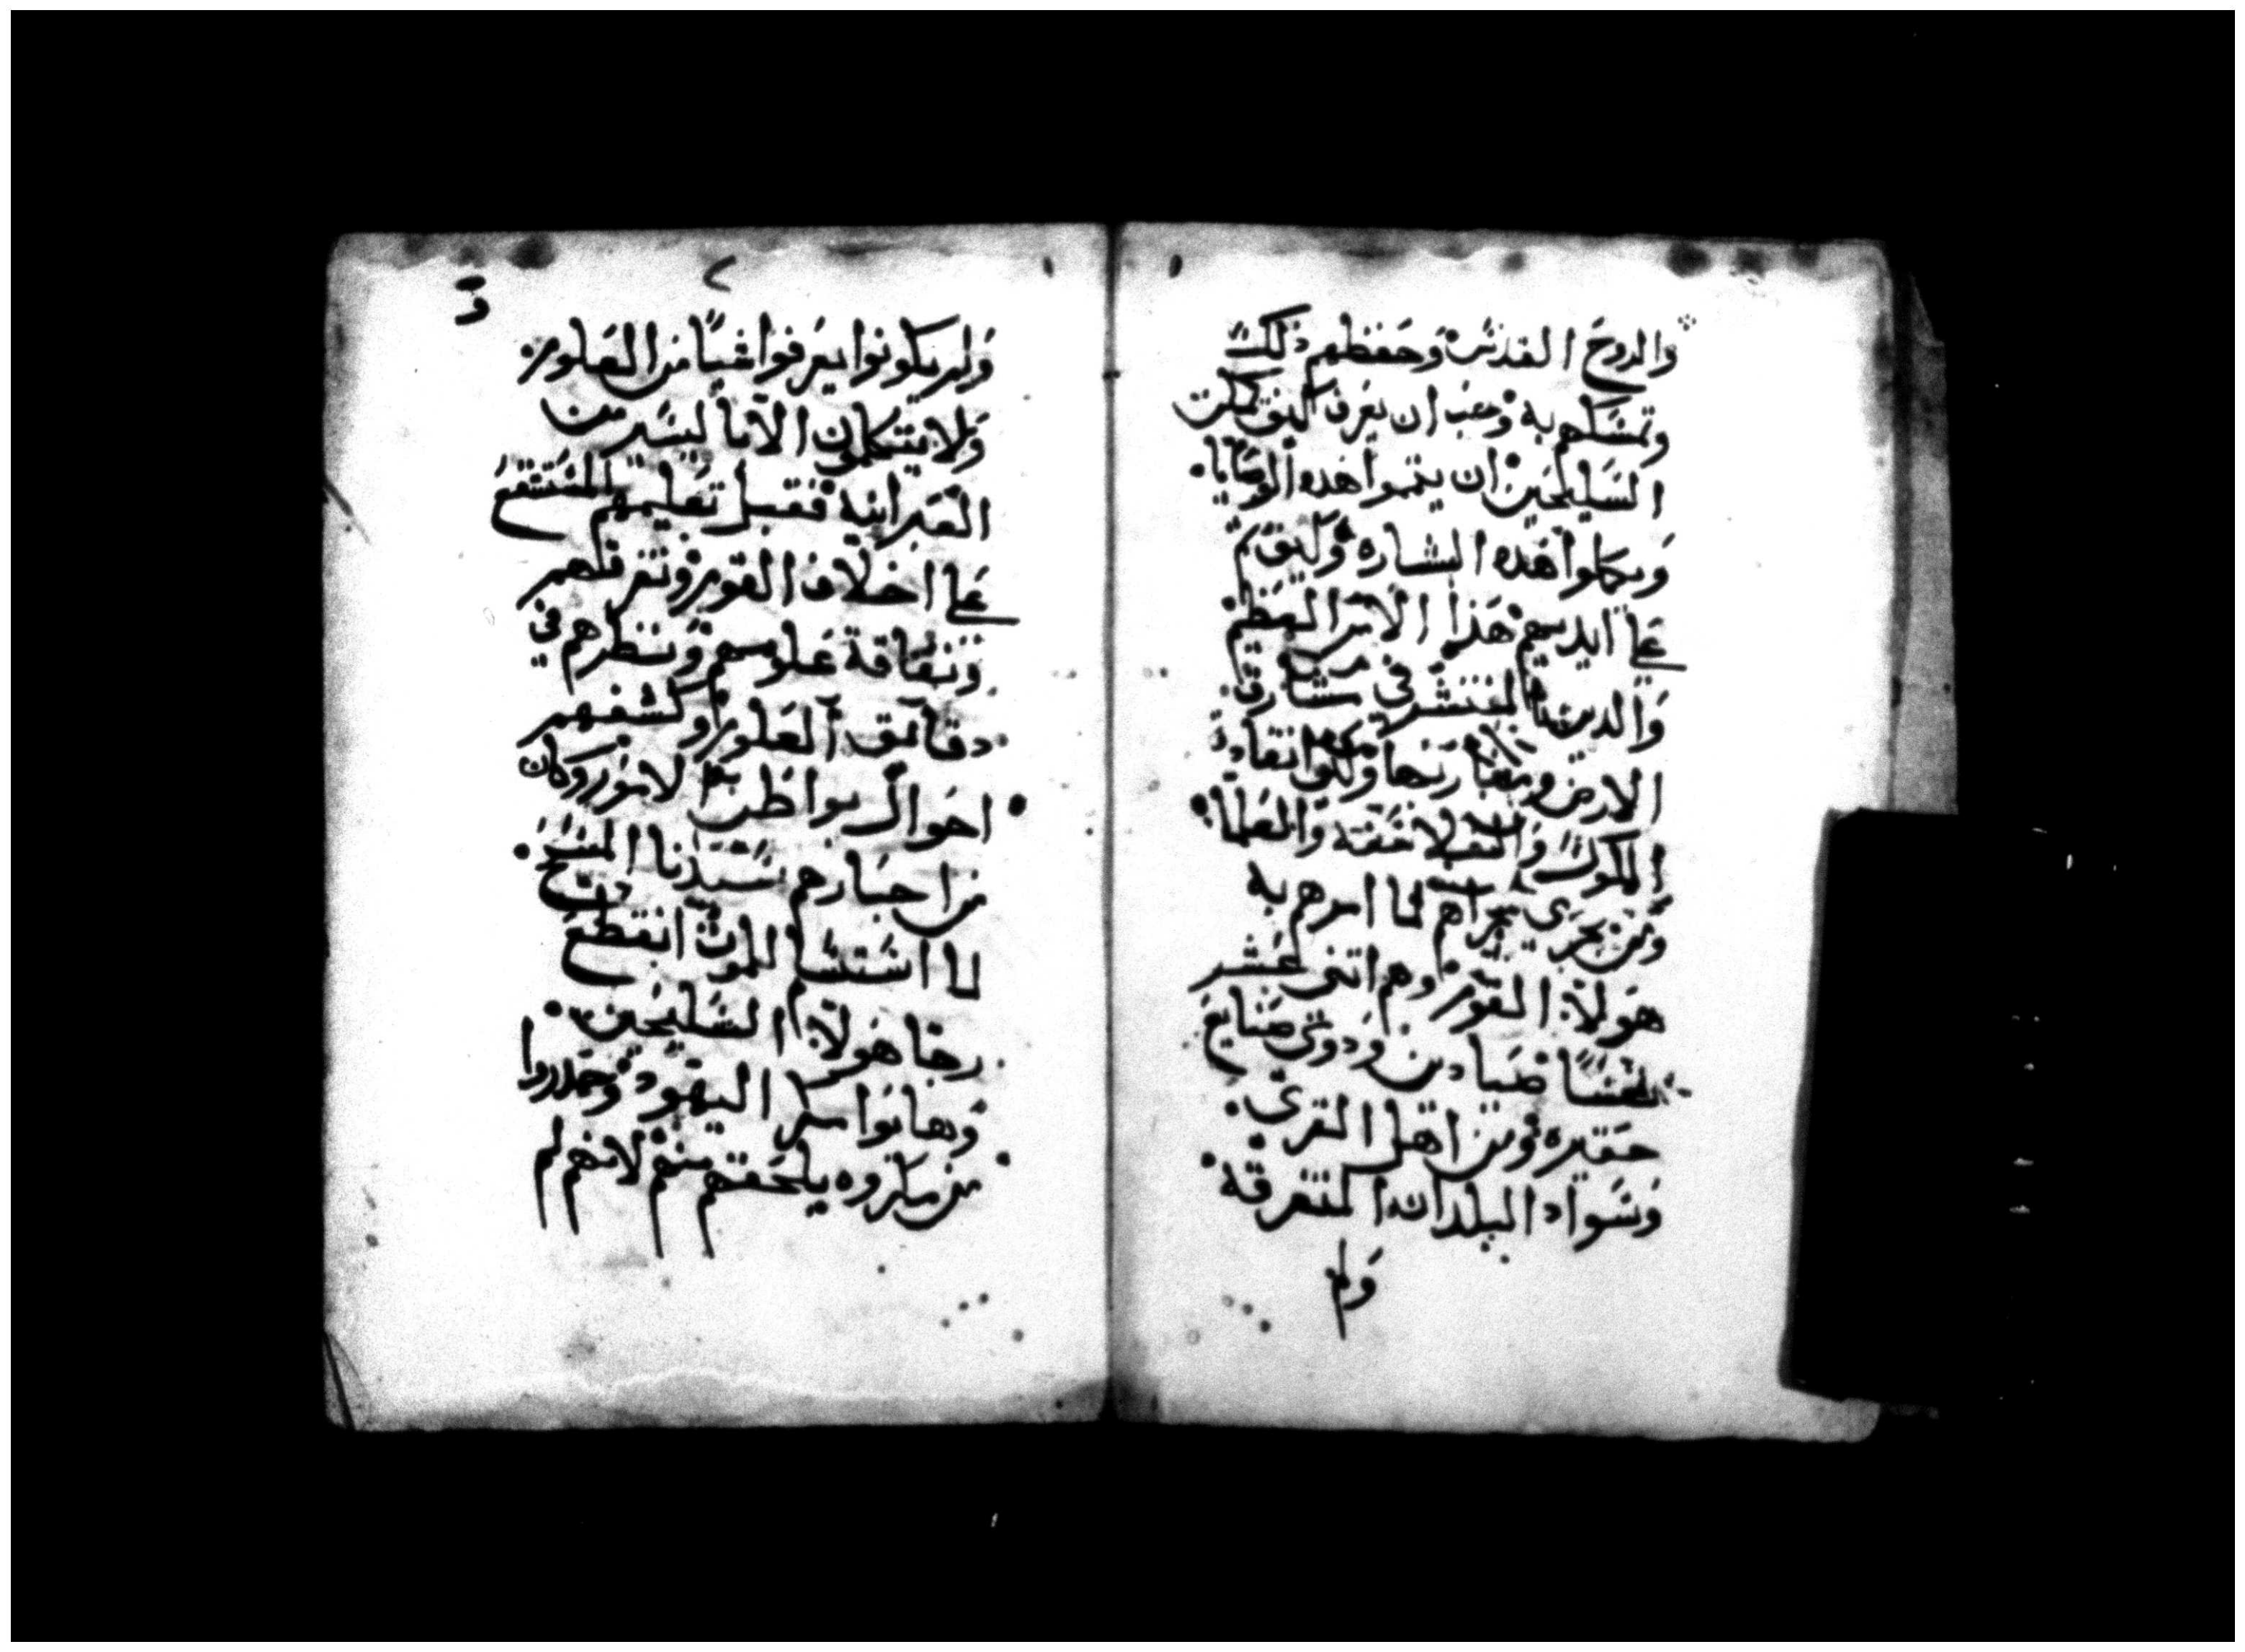 والروح القدس وحفظهم ذلك
وتمسكهم به ويجب ان يعرف كيف تمكن
السليحين ان يتمموا هذه الوصايا
ويكملوا هذه البشاره وكيف تم
على ايديهم هذا الامر العظيم
والدين المنتشر في مشارق
الارض ومغاربها وكيف انقادت
الملوك والفلاسفه والعلما
ومن يجري مجراهم لما امرهم به
هولآ القوم وهم اتنى عشر
نفسًا صيادين ودوى صنايع
حقيره ومن اهل القرى
وسواد البلدان المتفرقة
ولم
٢
ولم يكونوا يعرفوا شيًا من العلوم
ولا يتكلمون الا باليسير من
العبرانيه فقبل تعليمهم المستقع
على اخلاف القوم وتفرقهم
وتقاقة علومهم ونظرهم في
دقآئق العلوم وكشفهم
احوال بواطن الامور وكان
من اخبارهم سيدنا المسيح
لما استسلم للموت انقطع
رجا هولآ السليحين
وهابوا من اليهود وحدروا
من مكروه يلحقهم منهم لانهم لم